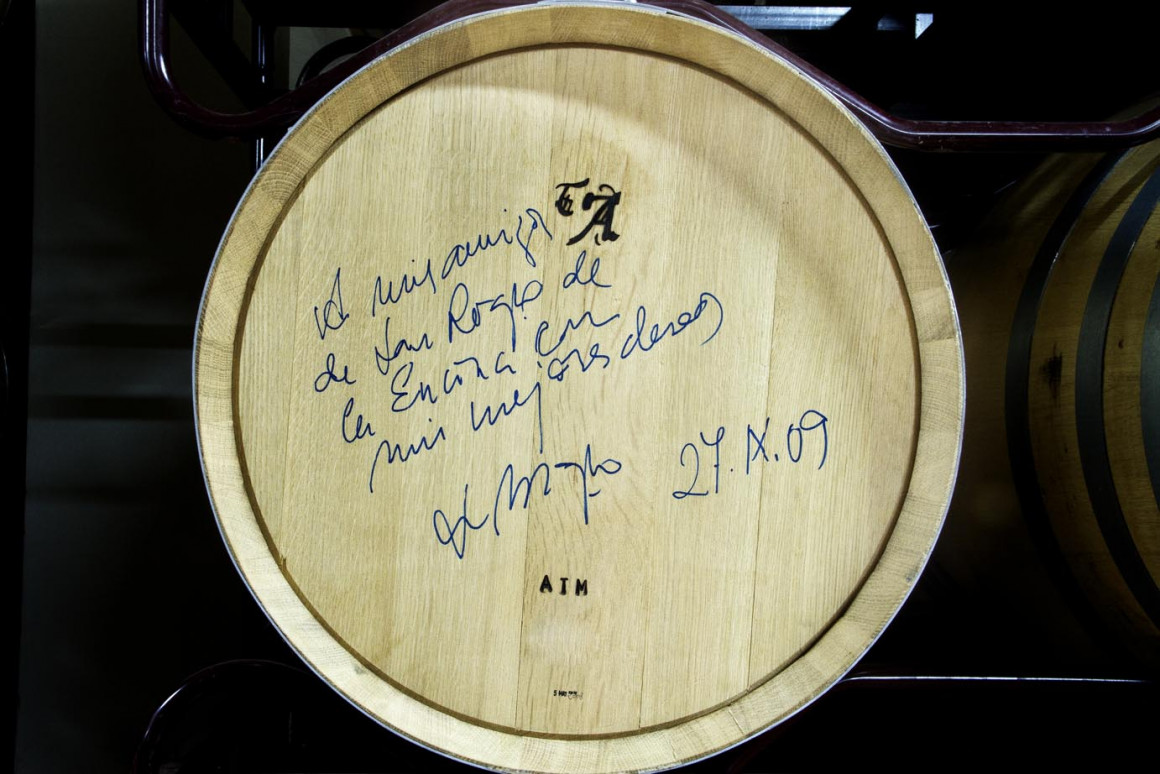 TA
A mis amigos
de San Roque de
la Encina con
mis mejores deseos
27.IX.09
AIM